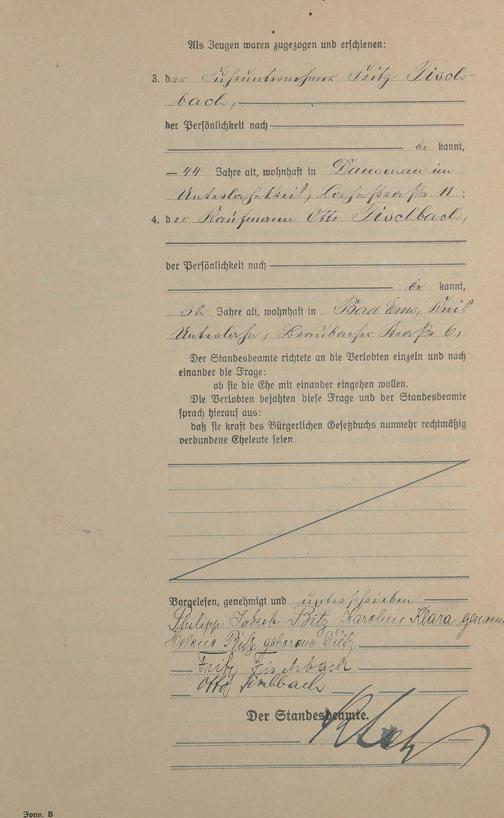 Als Zeugen waren zugezogen und erschienen:
3. der Fuhrunternehmer Fritz Fisch-
bach,
der Persönlichkeit nach
be kannt,
44 Jahre alt, wohnhaft in Dausenau im
Unterlahnkreis, Lahnstraße 11;
4. der Kaufmann Otto Fischbach,
der Persönlichkeit nach
be kannt,
32 Jahre alt, wohnhaft in Bad Ems, Kreis
Unterlahn, Braubacher Straße 6,
Der Standesbeamte richtete an die Verlobten einzeln und nach
einander die Frage:
ob sie die Ehe mit einander eingehen wollen.
Die Verlobten bejahten diese Frage und der Standesbeamte
sprach hierauf aus:
daß sie kraft des Bürgerlichen Gesetzbuchs nunmehr rechtmäßig
verbundene Eheleute seien.
Vorgelesen, genehmigt und unterschrieben
Philipp Jakob Bitz Karoline Klara genannt
Helena Bitz geborene Dietz
Fritz Fischbach
Otto Fischbach
Der Standesbeamte.
Form. B